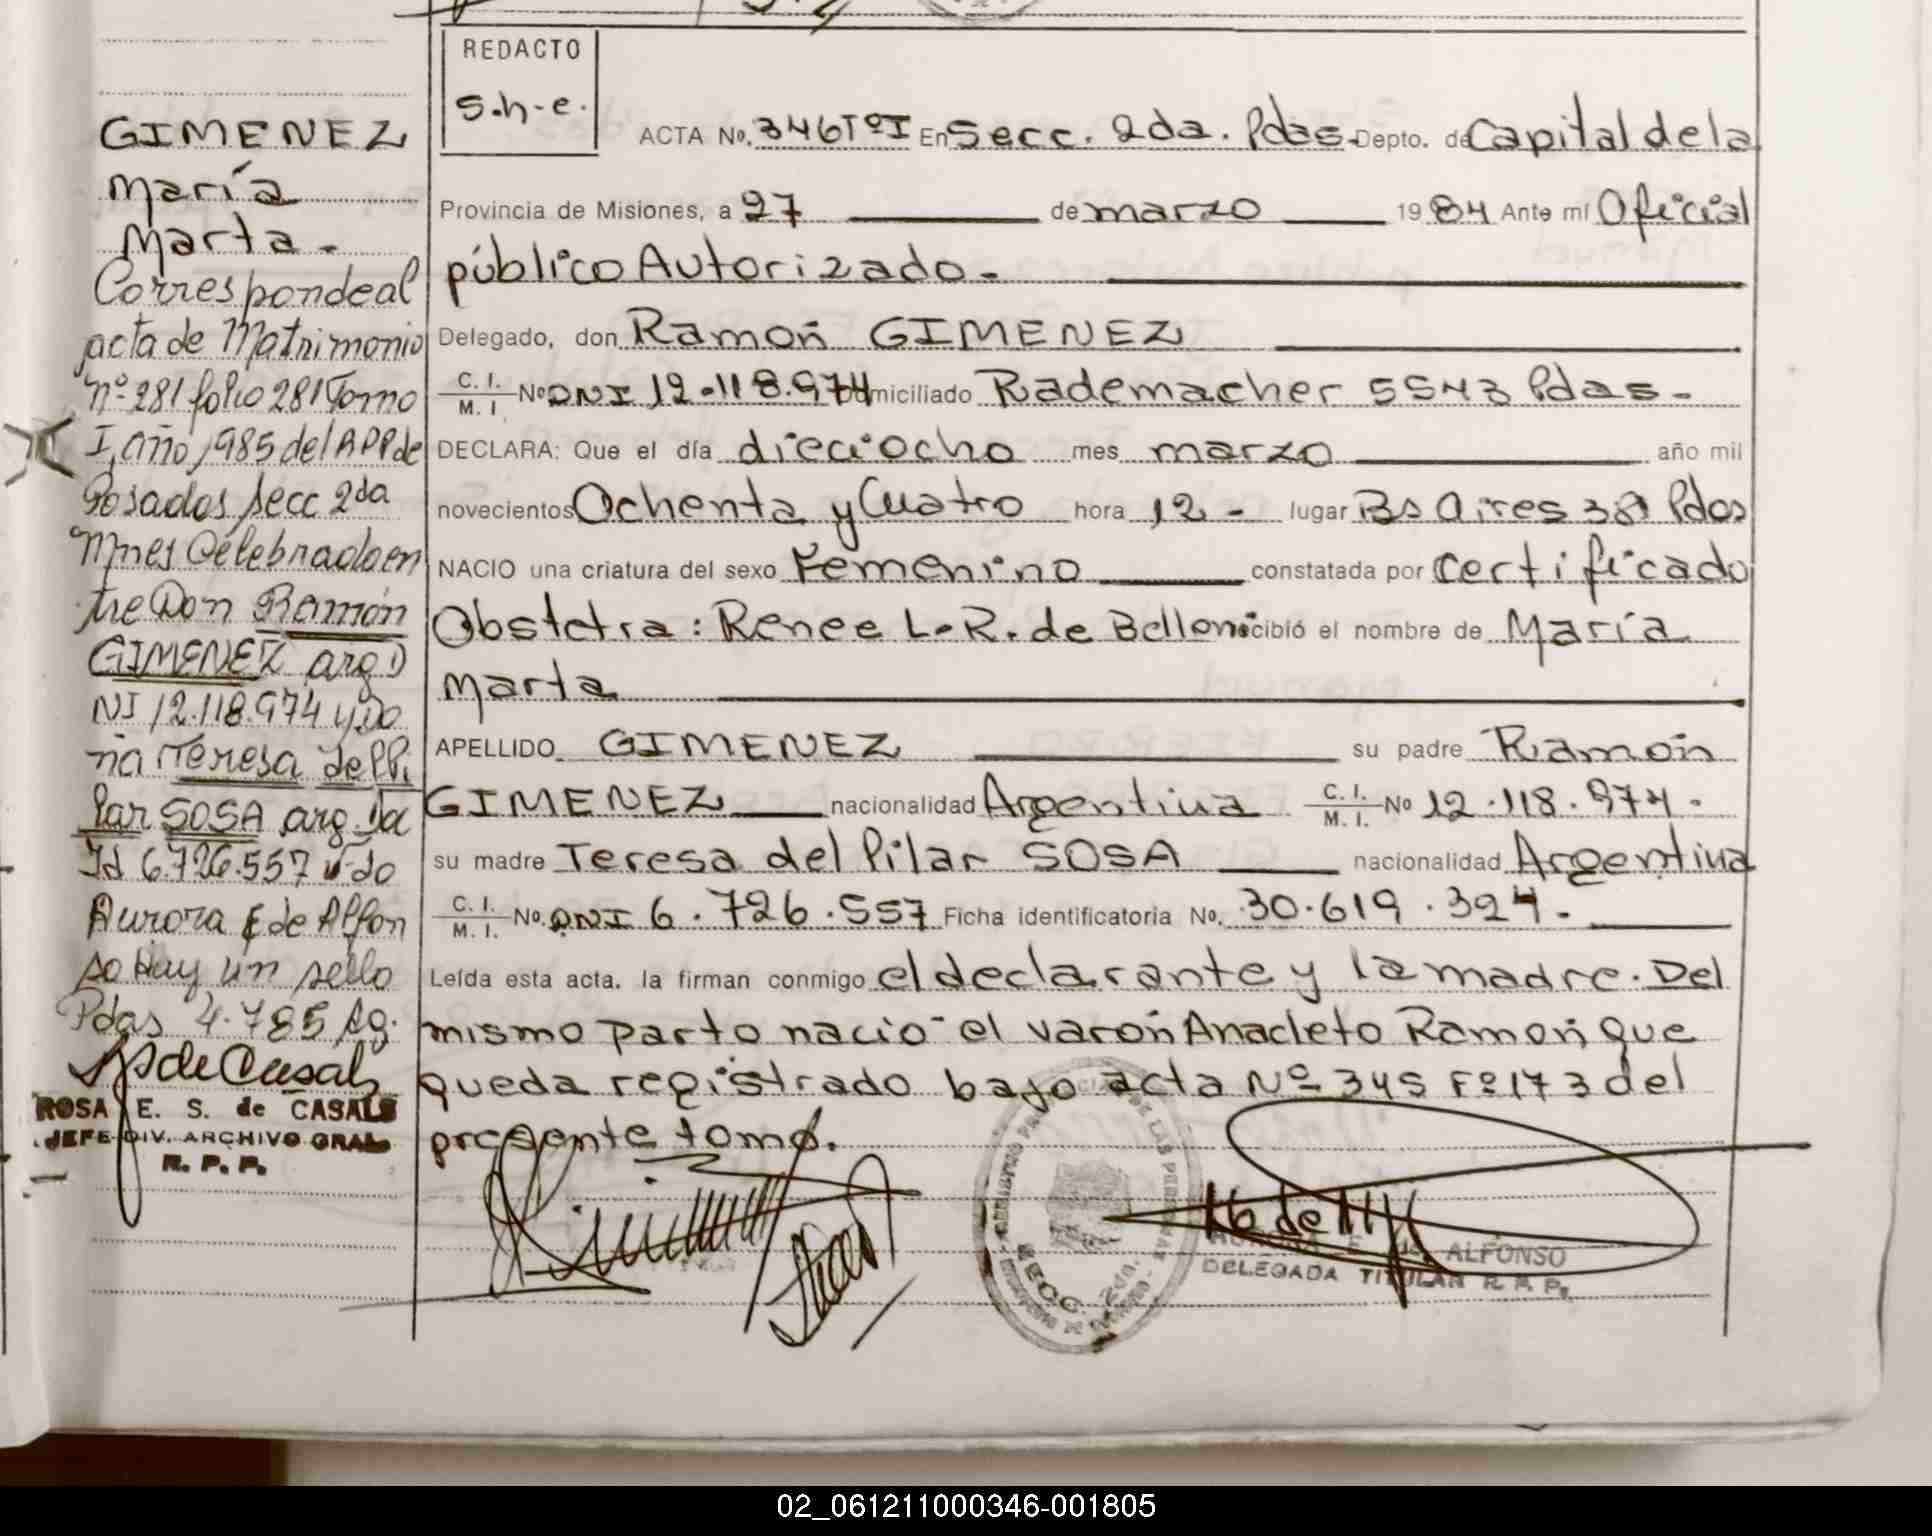 REDACTO
S.h-e.
ACTA No. 346 TºI En Secc. 2da. Pdas Depto. de Capital de la
Provincia de Misiones, a 27 de marzo 1984 Ante mí Oficial
público Autorizado.-
Delegado, don Ramón GIMENEZ
C. I. / M. I. No DNI 12.118.974 domiciliado Rademacher 5543 Pdas-
DECLARA: Que el día dieciocho mes marzo año mil
novecientos Ochenta y Cuatro hora 12- lugar Bs Aires 38 Pdas
NACIO una criatura del sexo Femenino constatada por certificado
Obstetra: Renee L.R. de Belloni recibió el nombre de María
Marta
APELLIDO GIMENEZ su padre Ramón
GIMENEZ nacionalidad Argentina C. I. / M. I. No 12.118.974.
su madre Teresa del Pilar SOSA nacionalidad Argentina
C. I. / M. I. No. DNI 6.726.557 Ficha identificatoria No. 30.619.324.-
Leída esta acta, la firman conmigo el declarante y la madre. Del
mismo parto nació el varón Anacleto Ramón que
queda registrado bajo acta Nº 345 Fº 173 del
presente tomo.
GIMENEZ
María
Marta-
Corresponde al
acta de Matrimonio
nº 281 folio 281 Tomo
I, año 1985 del RPP de
Posadas secc 2da
Mnes Celebrado en
tre Don Ramón
GIMENEZ arg D
NI 12.118.974 y Do
ña Teresa del Pi
lar SOSA arg. Da
Id 6.726.557 Fdo
Aurora E de Alfon
so Hay un sello
Pdas 4.785 Ag.
ROSA E. S. de CASALS
JEFE DIV. ARCHIVO GRAL
R. P. P.
SECC. 2da.
ALFONSO
DELEGADA TITULAR R. P. P.
02_061211000346-001805